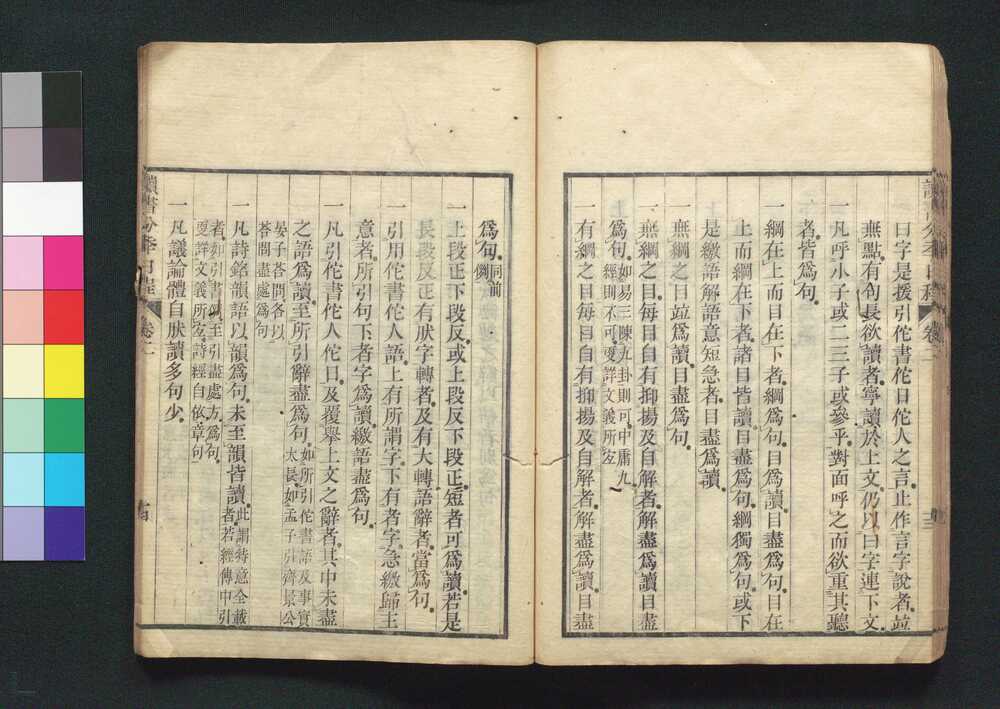 曰字是援引佗書佗日佗人之言止作言字說者竝
無點有句長欲讀者寧讀於上文仍以曰字連下文
一凡呼小子或二三子或參乎對面呼之而欲重其聽
者皆爲句
一綱在上而目在下者綱爲句目爲讀目盡爲句目在
上而綱在下者諸目皆讀目盡爲句綱獨爲句或下
是繳語解語意短急者目盡爲讀
一無綱之目竝爲讀目盡爲句
一無綱之目每目自有抑揚及自解者解盡爲讀目盡
爲句如易三陳九卦則可中庸九經則不可更詳文義所在
一有綱之目每目自有抑揚及自解者解盡爲讀目盡
爲句同前例
一上段正下段反或上段反下段正短者可爲讀若是
長段反正有肰字轉者及有大轉語辭者當爲句
一引用佗書佗人語上有所謂字下有者字急繳歸主
意者所引句下者字爲讀繳語盡爲句
一凡引佗書佗人佗日及覆舉上文之辭者其中未盡
之語爲讀至所引辭盡爲句如所引佗書語及事實太長如孟子引齊景公
晏子荅問各以荅問盡處爲句
一凡詩銘韻語以韻爲句未至韻皆讀此謂特意全載者若經傳中引
者如引書例至引盡處方爲句更詳文義所在詩經自依章句
一凡議論體自肰讀多句少
讀書分年日程 卷二